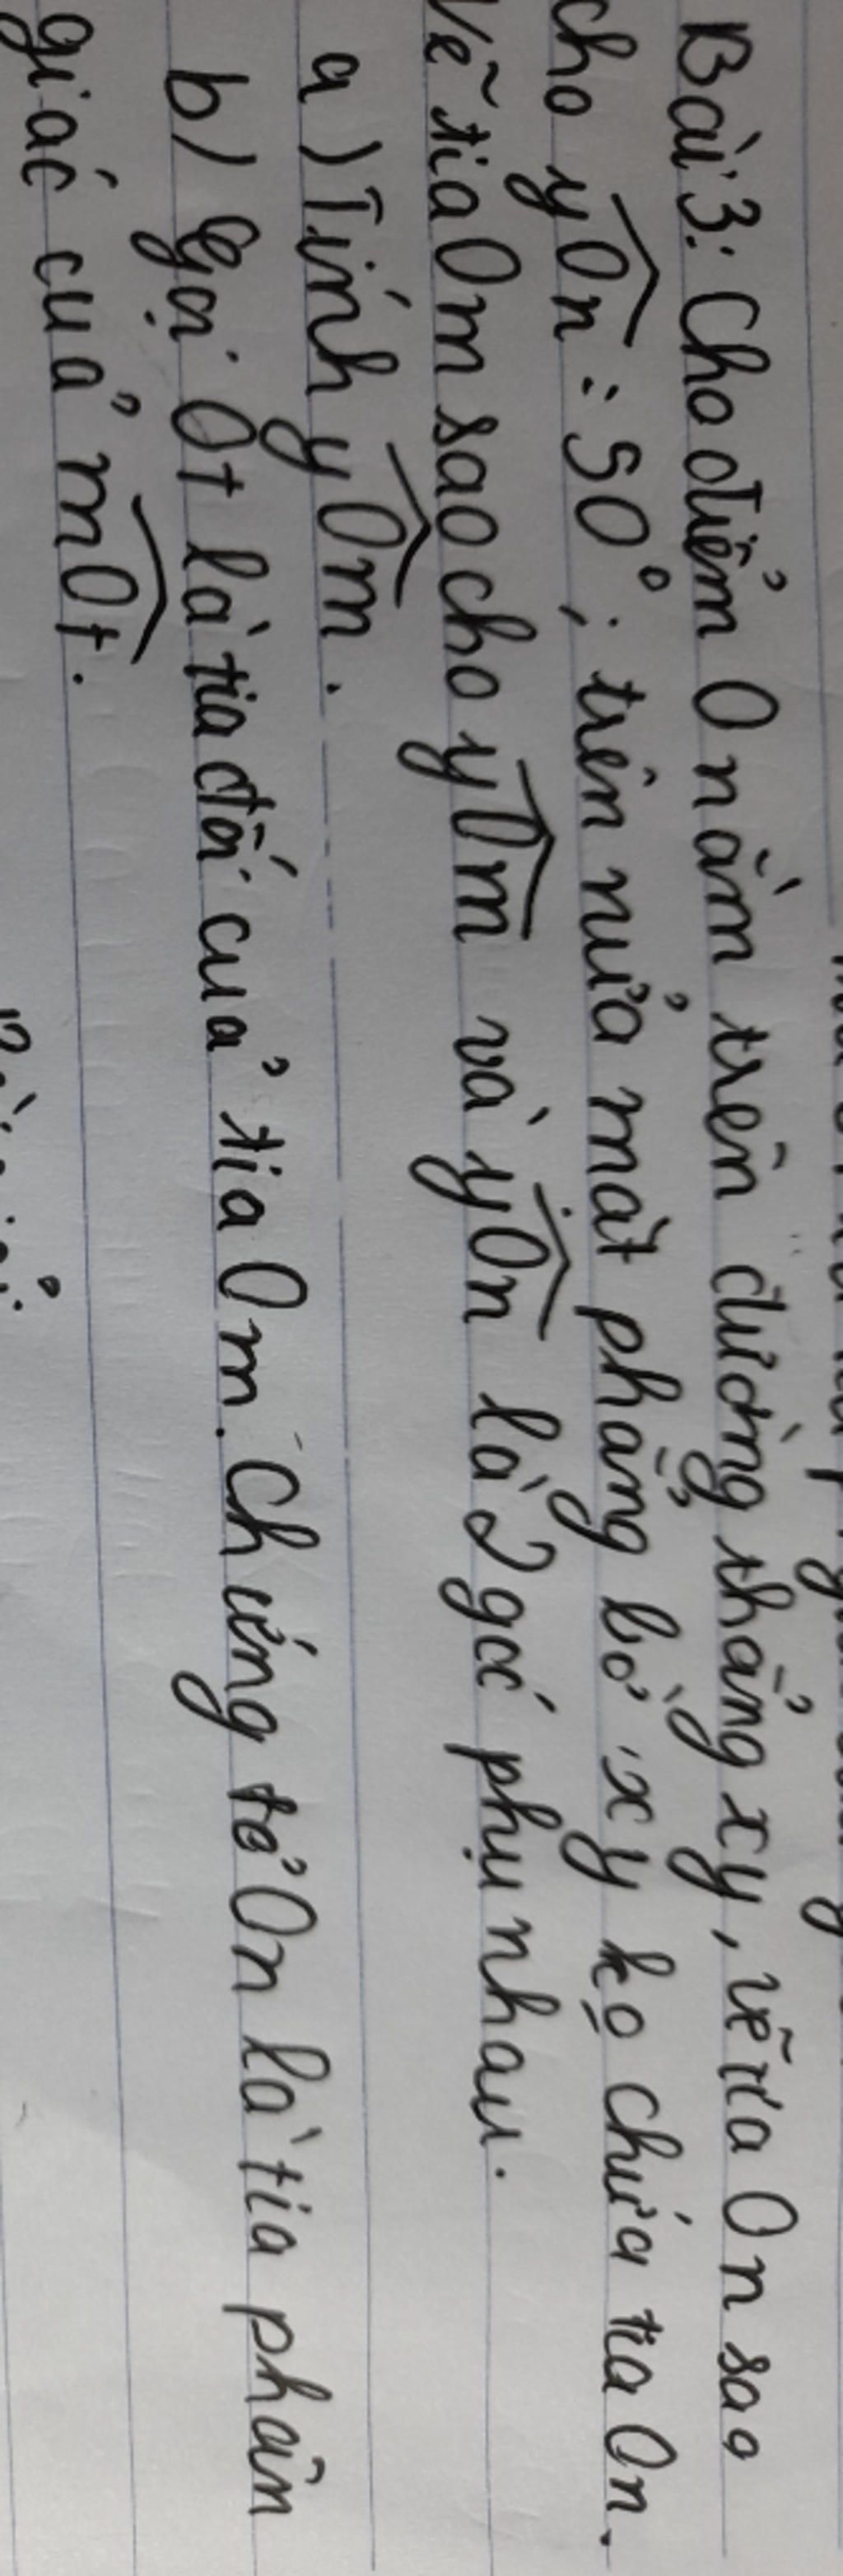 Bài 3: Cho điểm O nằm trên đường thẳng xy, vẽ tia On sao
cho yOn = 50°; trên nửa mặt phẳng bờ xy ko chứa tia On.
Vẽ tia Om sao cho yOm và yOn là 2 góc phụ nhau.
a) Tính yOm.
b) Gọi Ot là tia đối của tia Om. Chứng tỏ On là tia phân
giác của mOt.